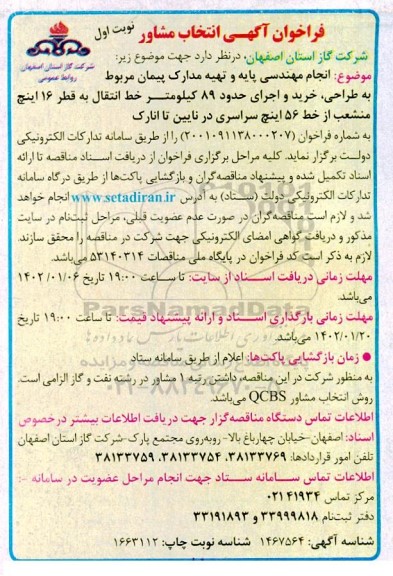 فراخوان آگهی انتخاب مشاور
نوبت اول
شرکت گاز استان اصفهان
روابط عمومی
شرکت گاز استان اصفهان، درنظر دارد جهت موضوع زیر:
موضوع: انجام مهندسی پایه و تهیه مدارک پیمان مربوط
به طراحی، خرید و اجرای حدود ۸۹ کیلومتر خط انتقال به قطر ۱۶ اینچ
منشعب از خط ۵۶ اینچ سراسری در نایین تا انارک
به شماره فراخوان (۲۰۰۱۰۹۱۱۳۸۰۰۰۲۰۷) را از طریق سامانه تدارکات الکترونیکی
دولت برگزار نماید. کلیه مراحل برگزاری فراخوان از دریافت اسناد مناقصه تا ارائه
اسناد تکمیل شده و پیشنهاد مناقصه‌گران و بازگشایی پاکت‌ها از طریق درگاه سامانه
تدارکات الکترونیکی دولت (ستاد) به آدرس www.setadiran.ir انجام خواهد
شد و لازم است مناقصه‌گران در صورت عدم عضویت قبلی، مراحل ثبت‌نام در سایت
مذکور و دریافت گواهی امضای الکترونیکی جهت شرکت در مناقصه را محقق سازند.
لازم به ذکر است کد فراخوان در پایگاه ملی مناقصات ۵۳۱۴۰۳۱۴ می‌باشد.
مهلت زمانی دریافت اسناد از سایت: تا ساعت ۱۹:۰۰ تاریخ ۱۴۰۲/۰۱/۰۶
می‌باشد.
مهلت زمانی بارگذاری اسناد و ارائه پیشنهاد قیمت: تا ساعت ۱۹:۰۰ تاریخ
۱۴۰۲/۰۱/۲۰ می‌باشد.
● زمان بازگشایی پاکت‌ها: اعلام از طریق سامانه ستاد
به منظور شرکت در این مناقصه، داشتن رتبه ۱ مشاور در رشته نفت و گاز الزامی است.
روش انتخاب مشاور QCBS می‌باشد.
اطلاعات تماس دستگاه مناقصه‌گزار جهت دریافت اطلاعات بیشتر درخصوص
اسناد: اصفهان-خیابان چهارباغ بالا- روبه‌روی مجتمع پارک-شرکت گاز استان اصفهان
تلفن امور قراردادها: ۳۸۱۳۳۷۶۹، ۳۸۱۳۳۷۵۴، ۳۸۱۳۳۷۵۹
اطلاعات تماس سامانه ستاد جهت انجام مراحل عضویت در سامانه :-
مرکز تماس ۴۱۹۳۴-۰۲۱
دفتر ثبت‌نام ۳۳۹۹۹۸۱۸ و ۳۳۱۹۱۸۹۳
شناسه آگهی: ۱۴۶۷۵۶۴ شناسه نوبت چاپ: ۱۶۶۳۱۱۲
ParsNamadData